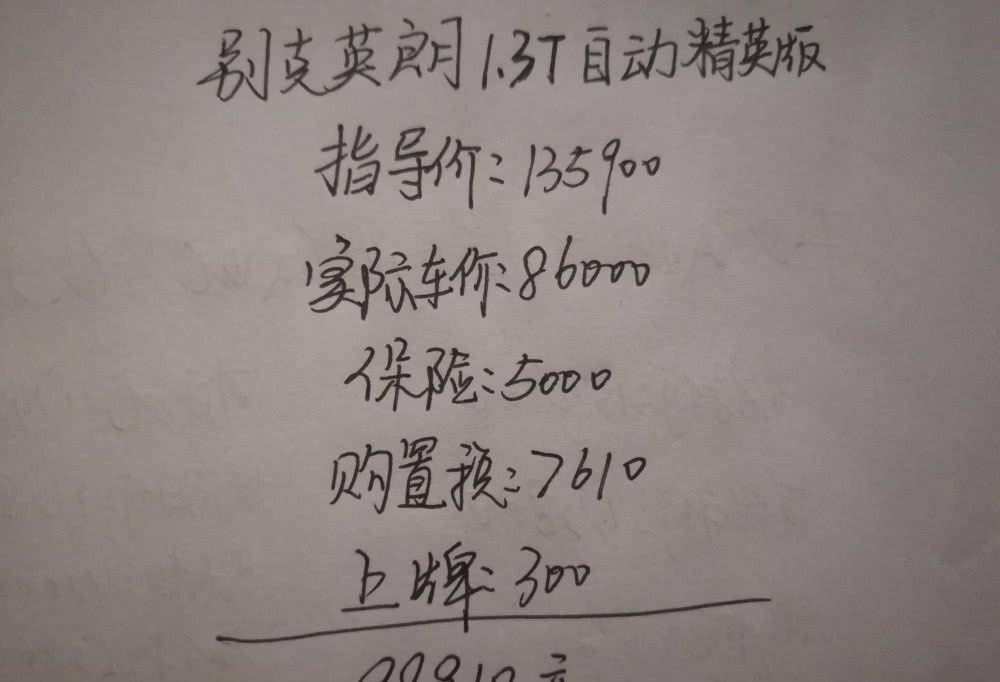 别克英朗1.3T自动精英版
指导价:135900
实际车价:86000
保险:5000
购置税:7610
上牌:300